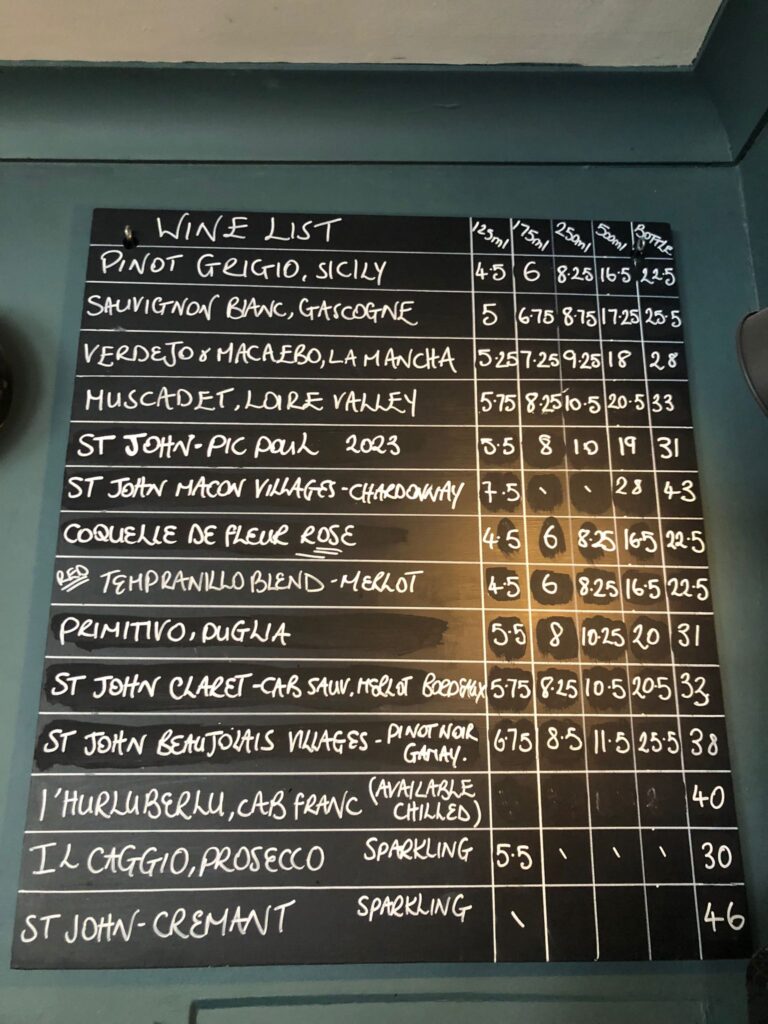 WINE LIST 125ml 175ml 250ml 500ml BOTTLE
PINOT GRIGIO, SICILY 4.5 6 8.25 16.5 22.5
SAUVIGNON BLANC, GASCOGNE 5 6.75 8.75 17.25 25.5
VERDEJO & MACAEBO, LA MANCHA 5.25 7.25 9.25 18 28
MUSCADET, LOIRE VALLEY 5.75 8.25 10.5 20.5 33
ST JOHN - PIC POUL 2023 5.5 8 10 19 31
ST JOHN MACON VILLAGES - CHARDONNAY 7.5 \ \ 28 43
COQUELLE DE FLEUR ROSE 4.5 6 8.25 16.5 22.5
RED TEMPRANILLO BLEND - MERLOT 4.5 6 8.25 16.5 22.5
PRIMITIVO, PUGLIA 5.5 8 10.25 20 31
ST JOHN CLARET - CAB SAUV. MERLOT BORDEAUX 5.75 8.25 10.5 20.5 33
ST JOHN BEAUJOLAIS VILLAGES - PINOT NOIR GAMAY. 6.75 8.5 11.5 25.5 38
l'HURLUBERLU, CAB FRANC (AVAILABLE CHILLED) 40
IL CAGGIO, PROSECCO SPARKLING 5.5 \ \ \ 30
ST JOHN - CREMANT SPARKLING \ 46